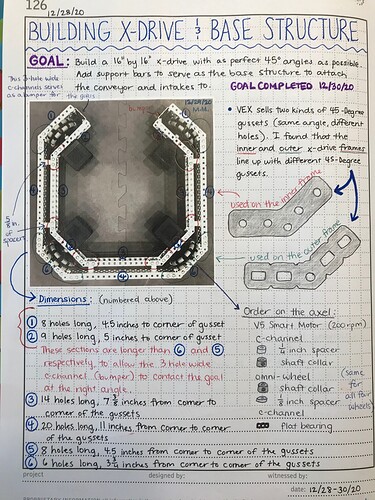 126
12/28/20
BUILDING X-DRIVE & BASE STRUCTURE
GOAL: Build a 16" by 16" x-drive with as perfect 45° angles as possible.
Add support bars to serve as the base structure to attach
the conveyor and intakes to.
GOAL COMPLETED 12/30/20
This 3-hole wide
c-channels serves
as a bumper for the goals
bumper
12/29/20
• VEX sells two kinds of 45-Degree
gussets (same angle, different
holes). I found that the
inner and outer x-drive frames
line up with different 45-Degree
gussets.
used on the inner frame
used on the outer frame
5/8 in.
of
spacers
Dimensions: (numbered above)
① 8 holes long, 4.5 inches to corner of gusset
② 9 holes long, 5 inches to corner of gusset
These sections are longer than ⑥ and ⑤
respectively, to allow the 3 hole wide
c-channel (bumper) to contact the goal
at the right angle.
③ 14 holes long, 7 3/8 inches from corner to
corner of the gussets
④ 20 holes long, 11 inches from corner to corner
of the gussets
⑤ 8 holes long, 4.5 inches from corner to corner of the gussets
⑥ 6 holes long, 3 1/4 inches from corner to corner of the gussets
Order on the axel:
V5 Smart Motor (200 rpm)
c-channel
1/4 inch spacer
shaft collar
omni-wheel
shaft collar
1/8 inch spacer
c-channel
flat bearing
(same
for
all four
wheels)
project
designed by:
witnessed by:
date: 12/28-30/20